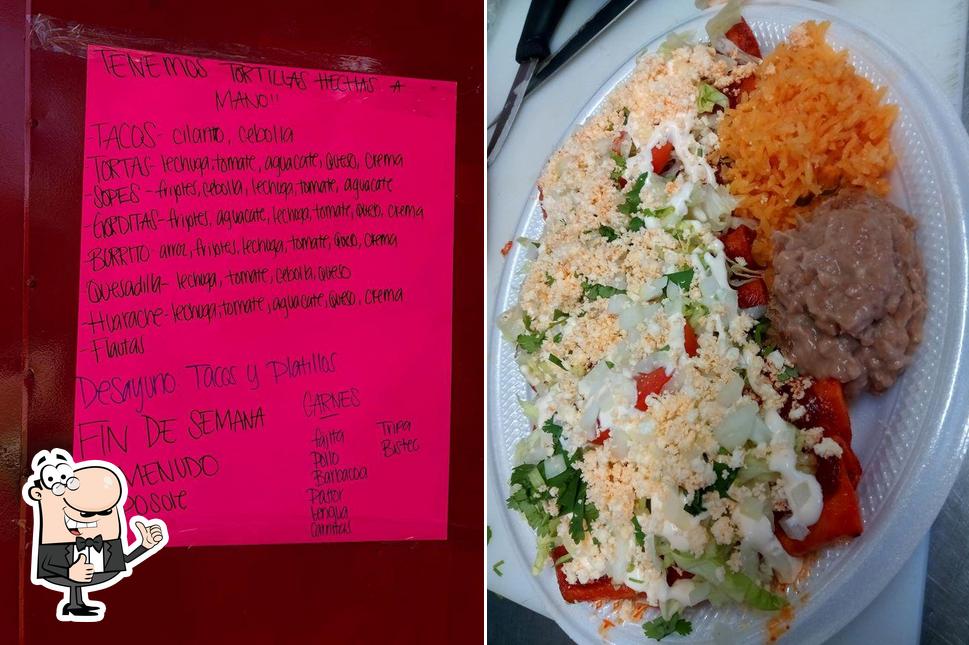 TENEMOS TORTILLAS HECHAS A
MANO!!
TACOS- cilantro, cebolla
TORTAS- lechuga, tomate, aguacate, queso, crema
-SOPES - frijoles, cebolla, lechuga, tomate, aguacate
-GORDITAS- frijoles, aguacate, lechuga, tomate, queso, crema
-BURRITO- arroz, frijoles, lechuga, tomate, queso, crema
Quesadilla- lechuga, tomate, cebolla, queso
-Huarache- lechuga, tomate, aguacate, queso, crema
-Flautas
Desayuno Tacos y Platillos
FIN DE SEMANA
MENUDO
POSOLE
CARNES
fajita
Pollo
Barbacoa
Pastor
lengua
Carnitas
Tripa
Bistec